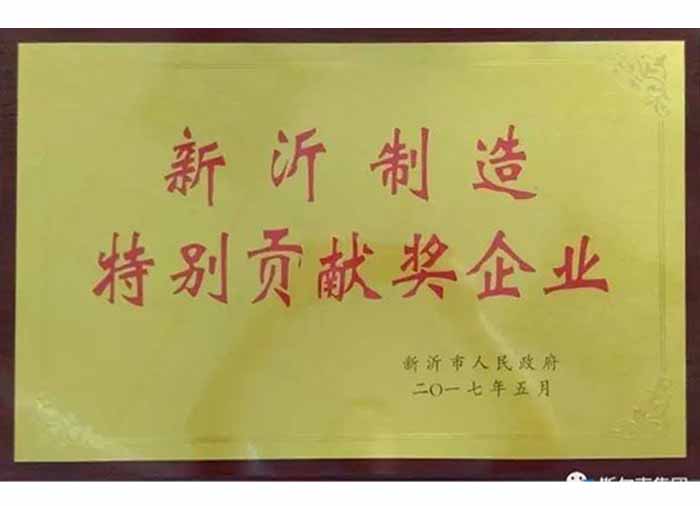 新沂制造
特别贡献奖企业
新沂市人民政府
二〇一七年五月